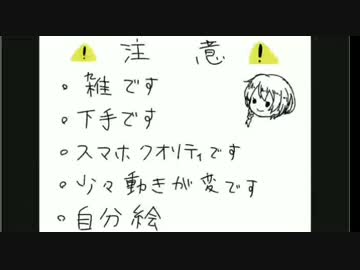 注意
・雑です
・下手です
・スマホクオリティです
・少々動きが変です
・自分絵